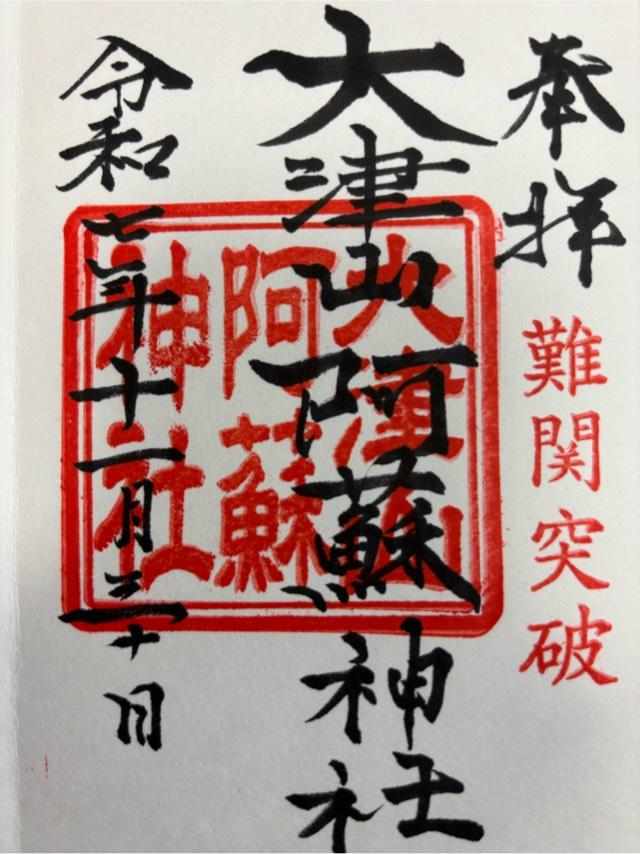 奉拝
難関突破
大津山阿蘇神社
大津山
阿蘇
神社
令和七年十一月三十日